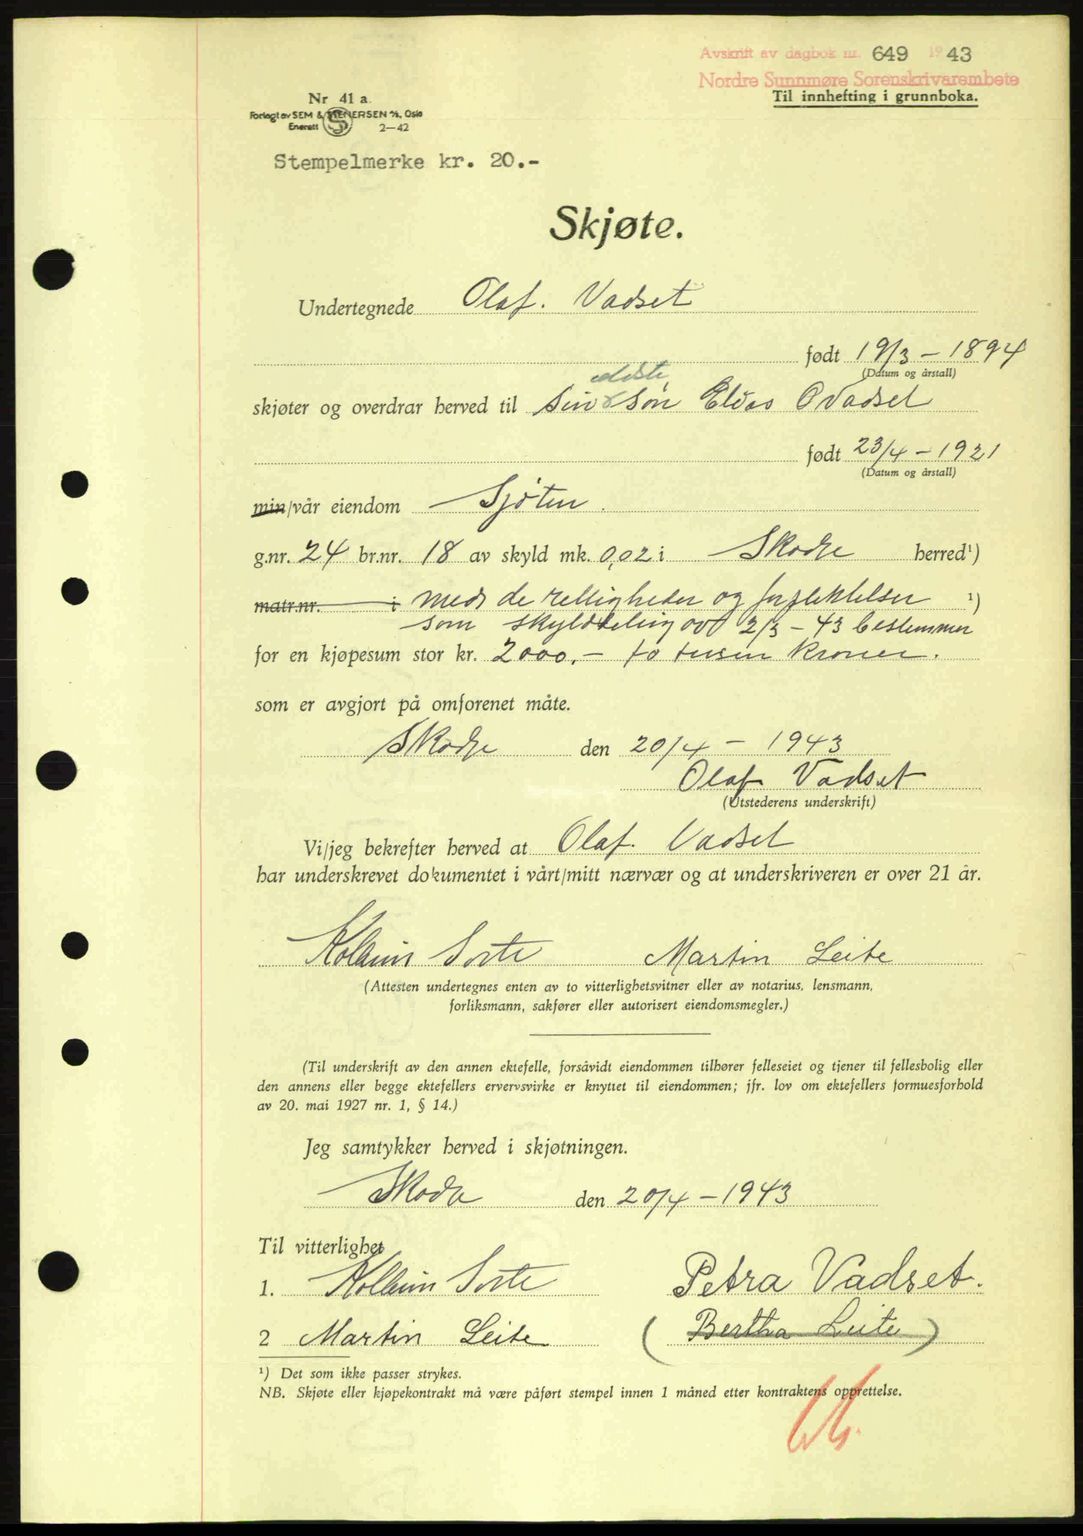 Avskrift av dagbok nr. 649 1943
Nordre Sunnmøre Sorenskrivarembete
Til innhefting i grunnboka.
Nr 41 a.
Forlagt av SEM & STENERSEN A/S, Oslo
Enerett 2—42
Stempelmerke kr. 20.-
Skjøte.
Undertegnede Olaf. Vadset
født 19/3 - 1894
(Datum og årstall)
eldste
skjøter og overdrar herved til sin søn Elias O Vadset
født 23/4 - 1921
(Datum og årstall)
min/vår eiendom Sjøtun.
g.nr. 24 br.nr. 18 av skyld mk. 0,02 i Skodje herred¹)
matr.nr. i med de rettigheder og forpliktelser ¹)
som skylddeling av 2/3 - 43 bestemmer
for en kjøpesum stor kr. 2000.- to tusen kroner.
som er avgjort på omforenet måte.
Skodje den 20/4 - 1943
Olaf Vadset
(Utstederens underskrift)
Vi/jeg bekrefter herved at Olaf. Vadset
har underskrevet dokumentet i vårt/mitt nærvær og at underskriveren er over 21 år.
Kolbein Sorte Martin Leite
(Attesten undertegnes enten av to vitterlighetsvitner eller av notarius, lensmann,
forliksmann, sakfører eller autorisert eiendomsmegler.)
(Til underskrift av den annen ektefelle, forsåvidt eiendommen tilhører felleseiet og tjener til fellesbolig eller
den annens eller begge ektefellers ervervsvirke er knyttet til eiendommen; jfr. lov om ektefellers formuesforhold
av 20. mai 1927 nr. 1, § 14.)
Jeg samtykker herved i skjøtningen.
Skodje den 20/4 - 1943
Til vitterlighet
1. Kolbein Sorte Petra Vadset.
2 Martin Leite (Bertha Leite)
¹) Det som ikke passer strykes.
NB. Skjøte eller kjøpekontrakt må være påført stempel innen 1 måned etter kontraktens opprettelse.